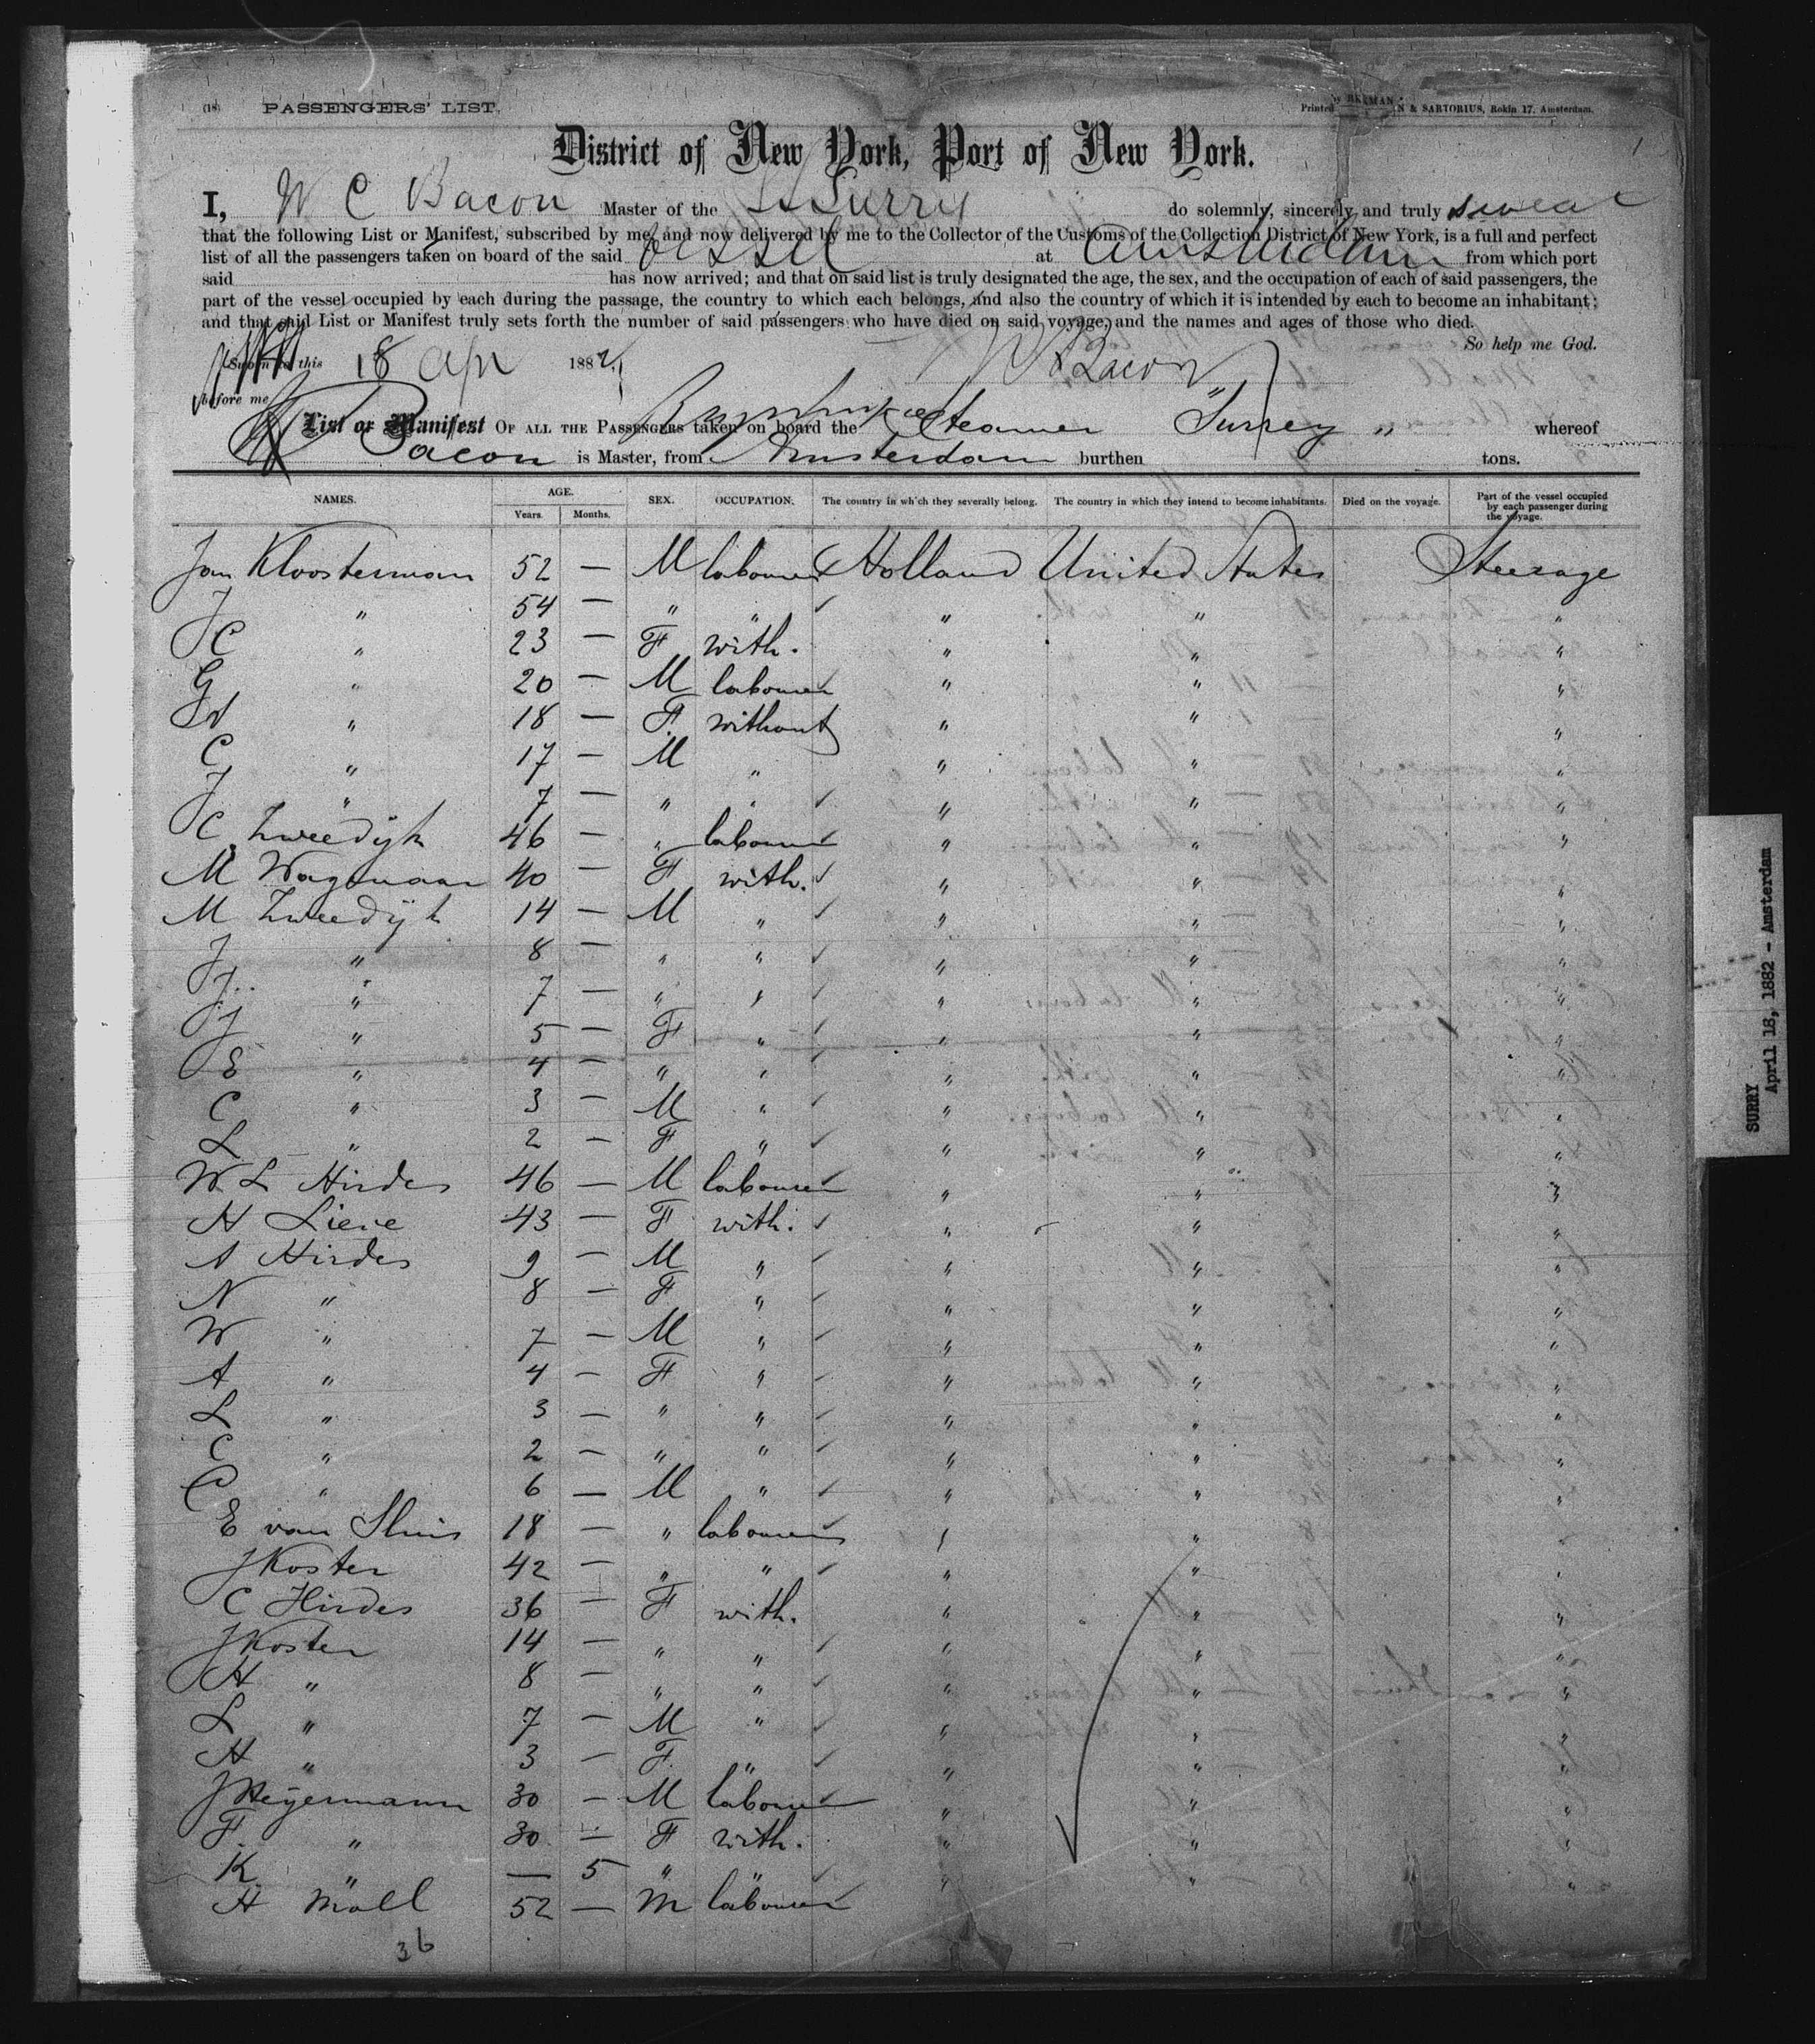 (18) PASSENGERS' LIST. Printed by BEEKMAN & SARTORIUS, Rokin 17, Amsterdam.
1
District of New York, Port of New York.
I, W C Bacon Master of the SS Surry do solemnly, sincerely and truly swear
that the following List or Manifest, subscribed by me, and now delivered by me to the Collector of the Customs of the Collection District of New York, is a full and perfect
list of all the passengers taken on board of the said vessel at Amsterdam from which port
said has now arrived; and that on said list is truly designated the age, the sex, and the occupation of each of said passengers, the
part of the vessel occupied by each during the passage, the country to which each belongs, and also the country of which it is intended by each to become an inhabitant;
and that said List or Manifest truly sets forth the number of said passengers who have died on said voyage, and the names and ages of those who died.
So help me God.
Sworn to this 18 Apr 1882 W C Bacon
before me
List or Manifest OF ALL THE PASSENGERS taken on board the Steamer "Surrey" whereof
Bacon is Master, from Amsterdam burthen tons.
NAMES. AGE. SEX. OCCUPATION. The country in which they severally belong. The country in which they intend to become inhabitants. Died on the voyage. Part of the vessel occupied by each passenger during the voyage.
Years. Months.
Jan Kloosterman 52 — M labourer Holland United States Steerage
J " 54 — " " " " "
C " 23 — F with. " " "
G " 20 — M labourer " " "
" 18 — F. without " " "
C " 17 — M " " " "
J " 7 — " " " " "
C Zweedijk 46 — " labourer " " "
M Wagenaar 40 — F with. " " "
M Zweedijk 14 — M " " " "
J " 8 — " " " " "
J. " 7 — " " " " "
J " 5 — F " " " "
E " 4 — " " " " "
C " 3 — M " " " "
L " 2 — F " " " "
W L Hirdes 46 — M labourer " " "
H Liene 43 — F with. " " "
A Hirdes 9 — M " " " "
N " 8 — F " " " "
W " 7 — M " " " "
A " 4 — F " " " "
L " 3 — " " " " "
C " 2 — " " " " "
C " 6 — M " " " "
E van Sluis 18 — " labourer " " "
J Koster 42 — " " " " "
C Hirdes 36 — F with. " " "
J Koster 14 — " " " " "
H " 8 — " " " " "
L " 7 — M " " " "
H " 3 — F. " " " "
J Heijermann 30 — M labourer " " "
F. " 30 — F with. " " "
K " — 5 " " " " "
H Moll 52 — M labourer
36
SURRY
April 18, 1882 - Amsterdam